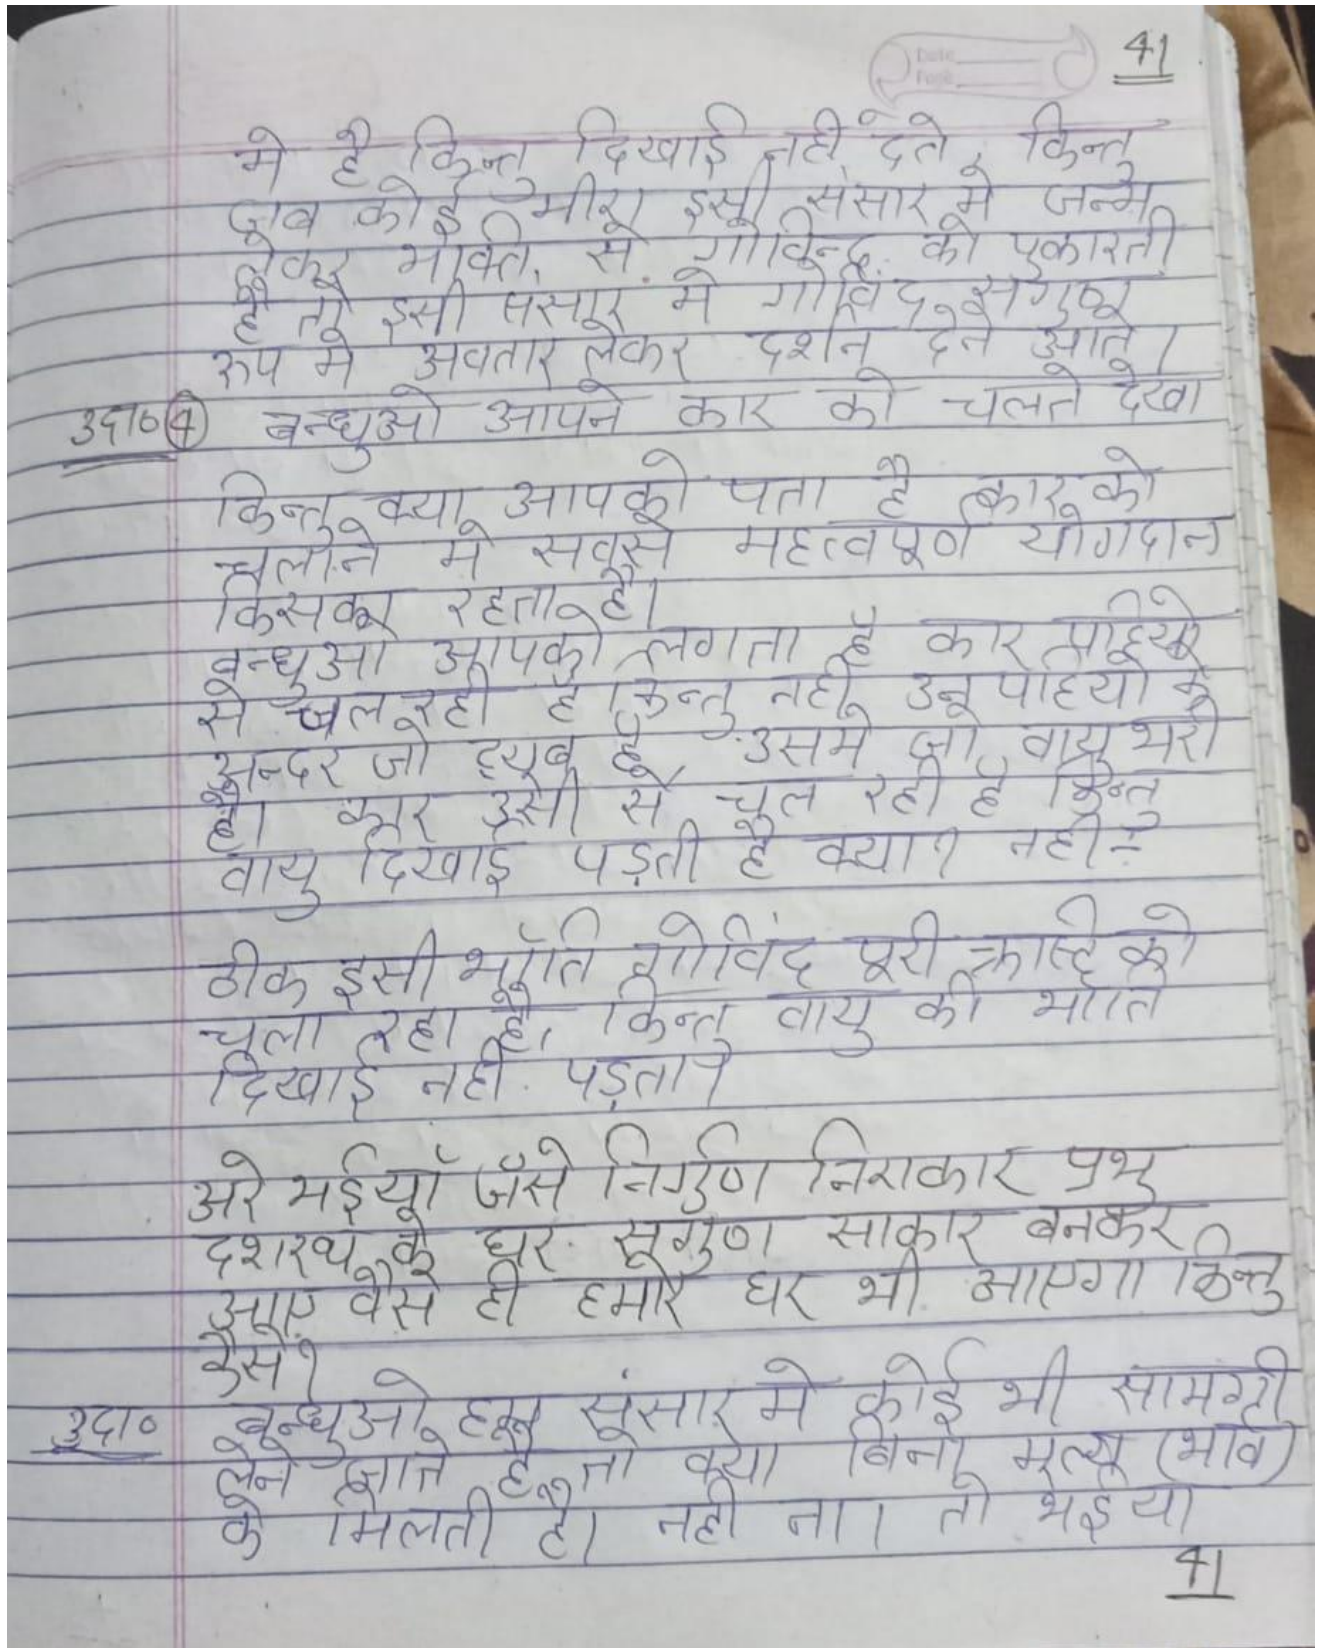 Date
Page
41
मे है किन्तु दिखाई नही देते, किन्तु
जब कोई मीरा इसी संसार मे जन्म
लेकर भक्ति से गोविन्द को पुकारती
है तो इसी संसार मे गोविंद सगुण
रुप मे अवतार लेकर दर्शन देने आते।
उदा० ④ बन्धुओ आपने कार को चलते देखा
किन्तु क्या आपको पता है कार को
चलाने मे सबसे महत्वपूर्ण योगदान
किसका रहता है।
बन्धुओ आपको लगता है कार पहियो
से चल रही है किन्तु नही उन पहियो के
अन्दर जो ट्यूब है उसमे जो वायु भरी
है। कार उसी से चल रही है किन्तु
वायु दिखाई पड़ती है क्या? नही-
ठीक इसी भाँति गोविंद पूरी को
चला रहा है, किन्तु वायु की भाति
दिखाई नही पड़ता?
अरे भईयाँ जैसे निर्गुण निराकार प्रभु
दशरथ के घर सगुण साकार बनकर
आए वैसे ही हमारे घर भी आएगा किन्तु
कैसे?
उदा० बन्धुओ हम संसार मे कोई भी सामग्री
लेने जाते है तो क्या बिना मूल्य (भाव)
के मिलती है। नही ना। तो भईया
41